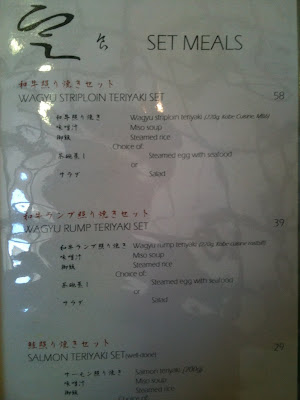 SET MEALS
和牛照り焼きセット
WAGYU STRIPLOIN TERIYAKI SET 58
和牛照り焼き Wagyu striploin teriyaki (200g,
味噌汁 Miso soup
御飯 Steamed rice
Choice of:
茶碗蒸し Steamed egg with seafood
or
サラダ Salad
和牛ランプ照り焼きセット
WAGYU RUMP TERIYAKI SET 39
和牛ランプ照り焼き Wagyu rump teriyaki (200g,
味噌汁 Miso soup
御飯 Steamed rice
Choice of:
茶碗蒸し Steamed egg with seafood
or
サラダ Salad
鮭照り焼きセット
SALMON TERIYAKI SET (well-done) 29
サーモン照り焼き Salmon teriyaki (200g)
味噌汁 Miso soup
御飯 Steamed rice
Choice of: